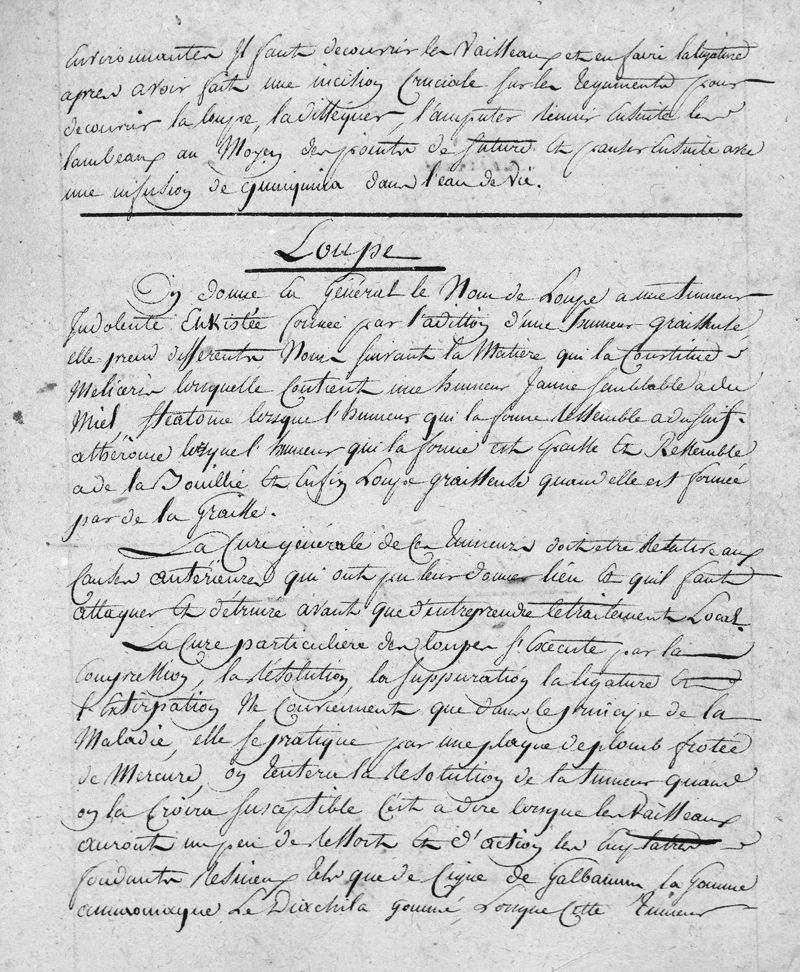 Environnantes Il faut decouvrir les Vaisseaux et en faire la ligature
apres avoir fait une incision Cruciale sur les tegumente pour
decouvrir la loupe, la dissequer, l'amputer reunir Ensuite les
lambeaux au Moyen des points de suture et panser Ensuite avec
une infusion de quinquina dans l'eau de vie.
Loupe
On donne En Général le Nom de Loupe a une tumeur
Indolente Enkistée formée par l'adition d'une humeur graisseuse,
elle prend differents Noms suivant la Matiere qui la Constitue
Meliceris lorsquelle Contient une humeur Jaune semblable a du
Miel, steatome lorsque l'humeur qui la forme ressemble a du suif.
athérome lorsque l'humeur qui la forme est Grasse et Ressemble
a de la Bouillie et Enfin Loupe graisseuse quand elle est formée
par de la Graisse.
La Cure générale de Ces Tumeurs doit etre Relative aux
Causes antérieures qui ont pu leur donner lieu et quil faut
attaquer et détruire avant que d'entreprendre le traitement Local.
La Cure particuliere des loupes s'Execute par la
Compression, la résolution, la suppuration la ligature et
l'Extirpation Ne Conviennent que dans le principe de la
Maladie, elle se pratique par une plaque de plomb frotée
de Mercure, on tentera la Resolution de la tumeur quand
on la Croira susceptible C'est a dire lorsque les Vaisseaux
auront un peu de Ressort et d'action les Emplatres
fondants Resineux tels que de Cigue de Galbanum la Gomme
ammoniaque Le Diachila gommé, Lorsque Cette Tumeur